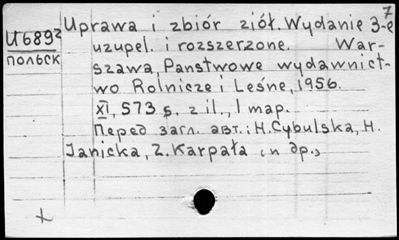 7
Uprawa i zbiór ziół. Wydanie 3-e
И689²
uzupel. i rozszerzone. War-
польск
szawa, Państwowe wydawnict-
wo Rolnicze i Leśne, 1956.
XI, 573 s. z il., 1 map.
Перед загл. авт.: H. Cybulska, H.
Janicka, Z. Karpała (и др.,